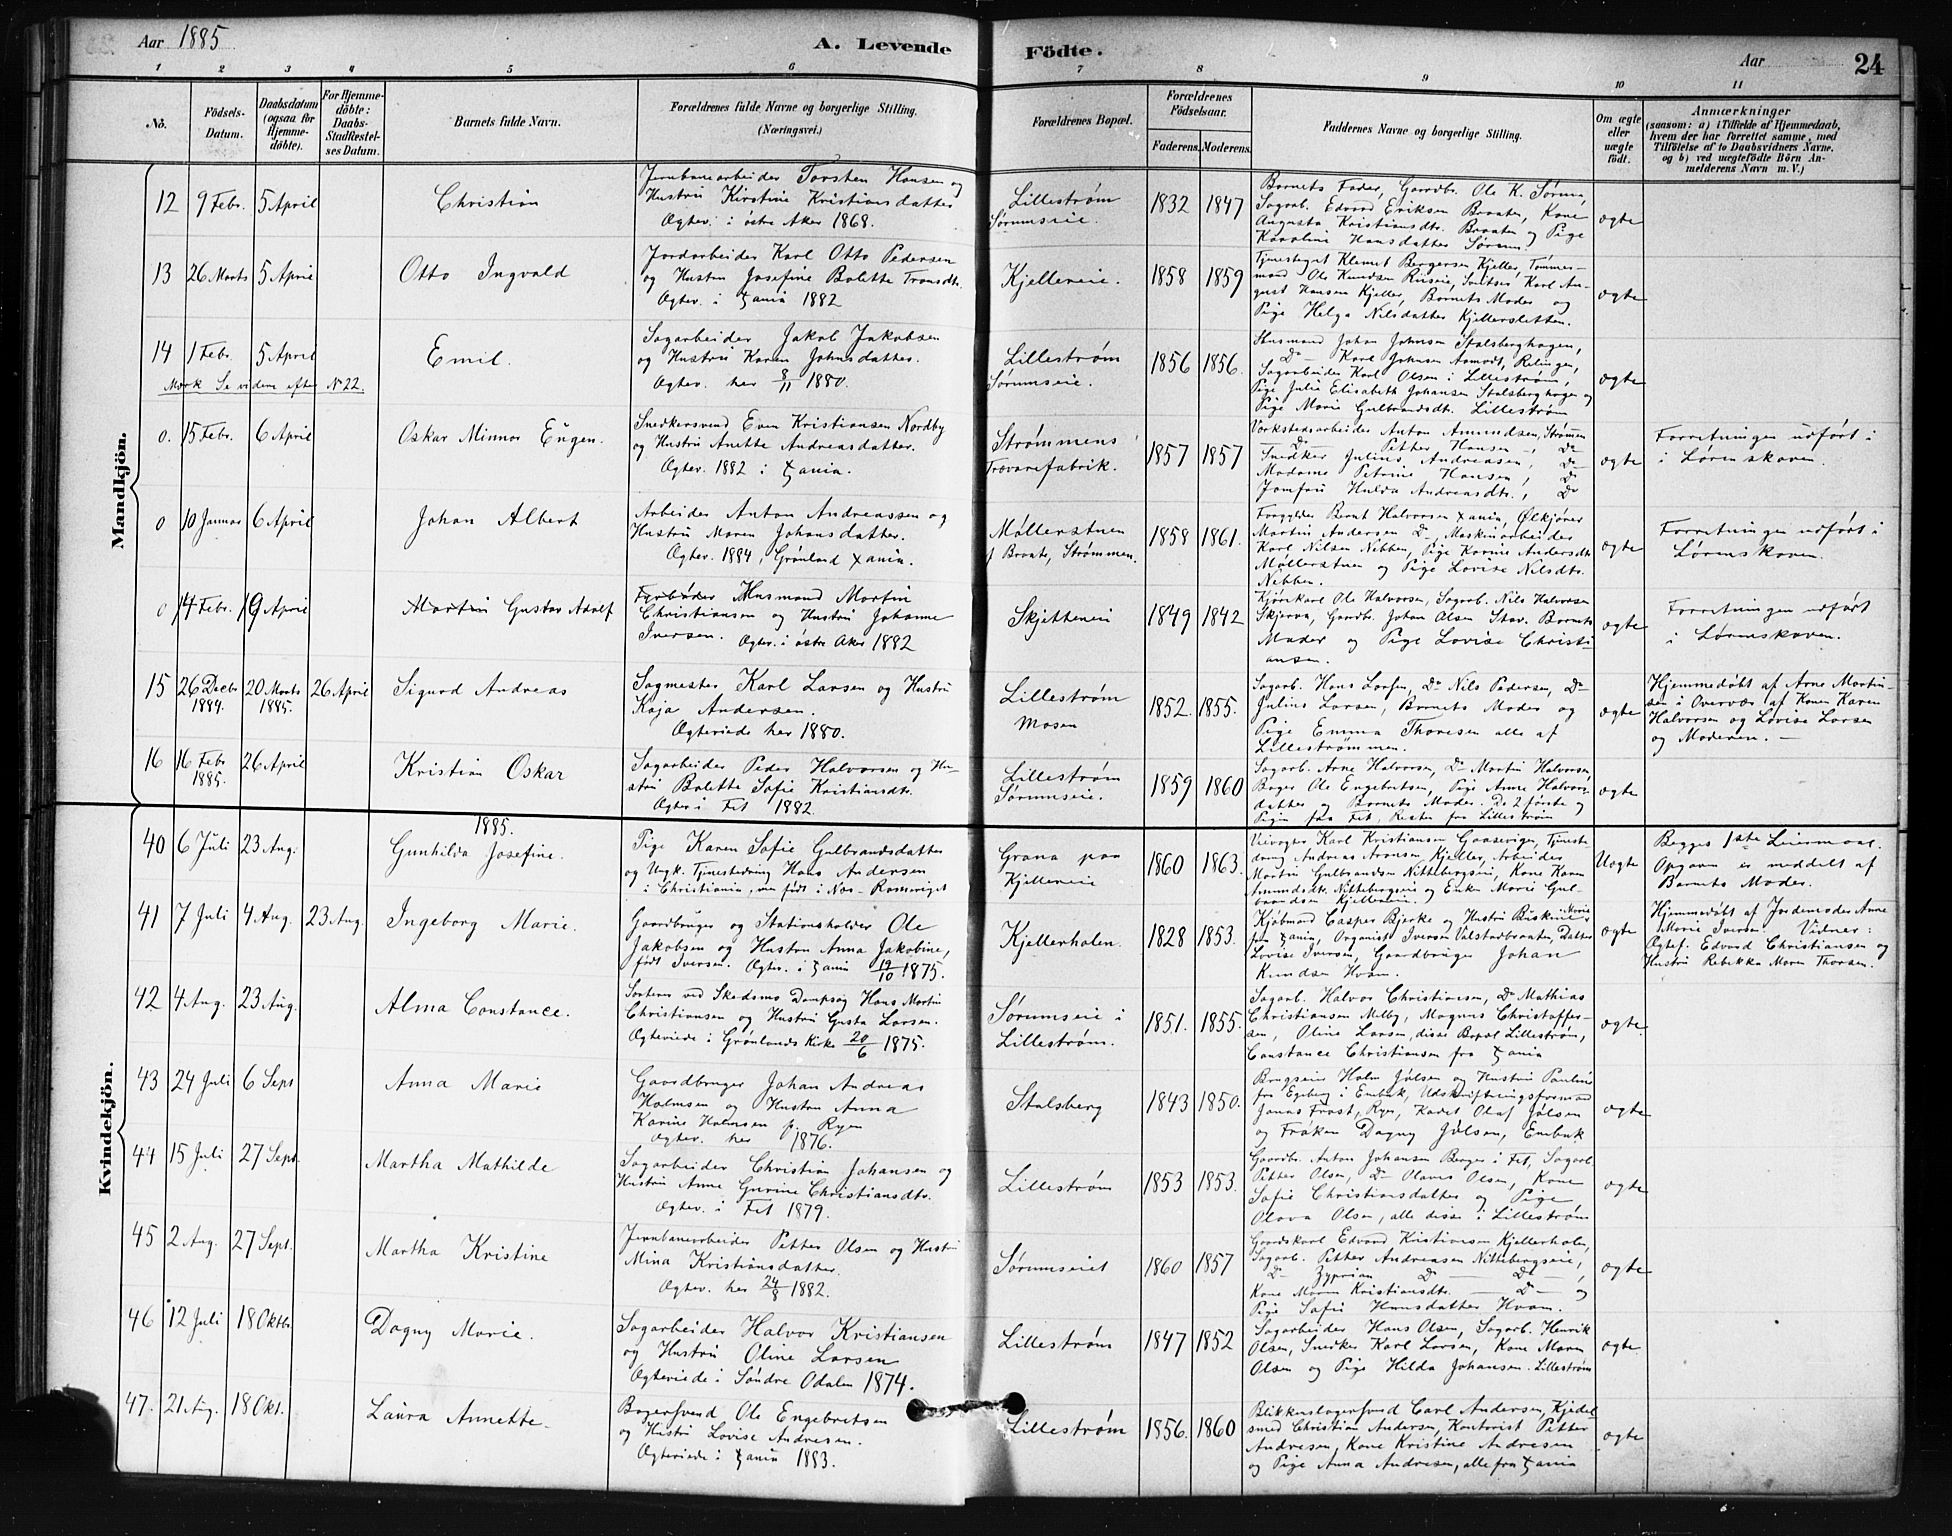 Aar 1885
A. Levende Födte.
Aar
24
1 2 3 4 5 6 7 8 9 10 11
No.
Födsels-Datum.
Daabsdatum (ogsaa for Hjemme-döbte).
For Hjemme-döbte: Daabs-Stadfæstel-ses Datum.
Barnets fulde Navn.
Forældrenes fulde Navne og borgerlige Stilling. (Næringsvei.)
Forældrenes Bopæl.
Forældrenes Födselsaar.
Faderens. Moderens.
Faddernes Navne og borgerlige Stilling.
Om ægte eller uægte födt.
Anmærkninger
(saasom: a) i Tilfælde af Hjemmedaab,
hvem der har forrettet samme, med
Tilföielse af to Daabsvidners Navne.
og b) ved uægtefödte Börn An-
melderens Navn m. V.)
Mandkjön.
12 9 Febr. 5 April
Christian
Jernbanearbeider Torsten Hansen og
Hustru Kirstine Kristiansdatter
Ægtev. i østre Aker 1868.
Lillestrøm
Sørumseie.
1832 1847
Barnets Fader, Gaardbr. Ole K. Sørum,
Sagarb. Edvard Eriksen Braaten, Kone
Augusta Kristiansdtr. Braaten og Pige
Karoline Hansdatter Sørum.
ægte
13 26 Marts 5 April
Otto Ingvald
Jordarbeider Karl Otto Pedersen
og Hustru Josefine Bolette Transdtr.
Ægtev. i Xania 1882
Kjellereie.
1858 1859
Tjenestegut Klemet Bergersen Kjeller, Tømmer-
mand Ole Knudsen Riiseie, Karl Au-
gust Hansen Kjeller, Barnets Moder og
Pige Helga Nilsdatter Kjellersletten.
ægte
14 1 Febr. 5 April
Mærk Se videre efter N 22.
Emil.
Sagarbeider Jakob Jakobsen
og Hustru Karen Johnsdatter.
Ægtev. her 8/11 1880.
Lillestrøm
Sørumseie.
1856 1856.
Husmand Johan Johnsen Stalsberghagen,
Do Karl Johnsen Aamodt, Relingen,
Sagarbeider Karl Olsen i Lillestrøm,
Pige Julie Elisabeth Johansen Stalsberghagen og
Pige Marie Gulbrandsdt. Lillestrøm
ægte
0. 15 Febr. 6 April
Oskar Minnor Eugen.
Snedkersvend Even Kristiansen Nordby
og Hustru Anette Andreasdatter.
Ægtev. 1882 i Xania.
Strømmens
Trævarefabrik.
1857 1857
Værkstedsarbeider Anton Amundsen, Strømmen
Do Petter Hansen, Do
Snedker Julius Andreasen, Do
Madame Petrine Hansen, Do
Jomfru Hulda Andreasdtr., Do
ægte
Forretningen udført i
i Lørenskoven.
0 10 Januar 6 April
Johan Albert
Arbeider Anton Andreassen og
Hustru Maren Johansdatter.
Ægtev. 1884, Grønland Xania.
Møllerstuen
Braate, Strømmen.
1858 1861.
Forgylder Bernt Halvorsen Xania, Ølkjører
Martin Andersen Do, Maskinarbeider
Karl Nilsen Nebben, Pige Karine Andersdtr.
Møllerstuen og Pige Lovise Nilsdtr.
Nebben.
ægte
Forretningen udført i
Lørenskoven.
0 14 Febr. 19 April
Martin Gustav Adolf
Fyrbøder Husmand Martin
Christiansen og Hustru Johanne
Iversen. Ægtev. i østre Aker 1882
Skjetteneie
1849 1842
Kjørekarl Ole Halvorsen, Sagarb. Nils Halvorsen
Skjerva, Gaardb. Johan Olsen Stav. Barnets
Moder og Pige Lovise Christi-
ansen.
ægte
Forretningen udført
i Lørenskoven.
15 26 Decbr 1884. 20 Marts 1885. 26 April
Sigurd Andreas
Sagmester Karl Larsen og Hustru
Kaja Andersen.
Ægteviede her 1880.
Lillestrøm
Mosen
1852. 1855.
Sagarb. Hans Larsen, Do Nils Pedersen, Do
Julius Larsen, Barnets Moder og
Pige Emma Thoresen alle af
Lillestrømmen.
ægte
Hjemmedøbt af Arne Martin-
sen i Overvær af Konen Karen
Halvorsen og Lovise Larsen
og Moderen. —
16 16 Febr 1885. 26 April
Kristian Oskar
Sagarbeider Peder Halvorsen og Hu-
stru Bolette Sofie Kristiansdtr.
Ægtev. i Fet 1882.
Lillestrøm
Sørumseie.
1859 1860
Sagarb. Arne Halvorsen, Do Martin Halvorsen,
Bager Ole Engebretsen, Pige Anne Halvors-
datter og Barnets Moder. De 2 første og
Pigen fra Fet, Resten fra Lillestrøm
ægte
Kvindekjön.
1885.
40 6 Juli 23 Aug.
Gunhilda Josefine.
Pige Karen Sofie Gulbrandsdatter
og Ungk. Tjenestedreng Hans Andersen
i Christiania, men født i Næs - Romeriget
Grana paa
Kjellereie
1860 1863.
Veivogter Karl Kristiansen Gaaseviger, Tjeneste
dreng Andreas Arnesen Kjeller, Arbeider
Martin Gulbrandsen Nittebergseie, Kone Karen
Amundsdtr. Nittebergseie og Enke Marie Gul-
brandsen Kjellereie.
Uægte
Begges 1ste Leiermaal.
Opgaven er meddelt af
Barnets Moder.
41 7 Juli 4 Aug. 23 Aug.
Ingeborg Marie.
Gaardbruger og Stationsholder Ole
Jakobsen og Hustru Anna Jakobine,
født Iversen. Ægtev. i Xania 19/10 1875.
Kjellerholen.
1828 1853.
Kjøbmand Casper Bjerke og Hustru Marie
fra Xania, Organist Iversen Vilstadbraaten, Datter
Lovise Iversen, Gaardbruger Johan
Knudsen Hvam.
ægte
Hjemmedøbt af Jordemoder Anne
Marie Iversen Vidner:
Ægtef. Edvard Christiansen og
Hustru Rebekka Maren Thorsen.
42 4 Aug. 23 Aug.
Alma Constance.
Sorterer ved Skedsmo Dampsag Hans Martin
Christiansen og Hustru Gusta Larsen.
Ægteviede i Grønlands Kirke 20/6 1875.
Sørumseie i
Lillestrøm.
1851. 1855.
Sagarb. Halvor Christiansen, Do Mathias
Christiansen Melby, Magnus Christoffer-
sen, Oline Larsen, disse Bopæl Lillestrøm,
Constance Christiansen fra Xania
ægte.
43 24 Juli 6 Sept
Anna Marie
Gaardbruger Johan Andreas
Holmsen og Hustru Anna
Karine Holmsen f. Ryen
Ægtev. her 1876.
Stalsberg
1843 1850.
Brugseier Holm Jølsen og Hustru Pauline
fra Egeberg i Enebak, Udskiftningsformand
Jonas Frost, Ryen, Kadet Olaf Jølsen
og Frøken Dagny Jølsen, Enebak
ægte
44 15 Juli 27 Sept.
Martha Mathilde
Sagarbeider Christian Johansen og
Hustru Anne Gurine Christiansdtr.
Ægtev. i Fet 1879.
Lillestrøm
1853 1853.
Gaardbr. Anton Johansen Berger i Fet, Sagarb.
Petter Olsen, Do Olaves Olsen, Kone
Sofie Christiansdatter og Pige
Olava Olsen, alle disse i Lillestrøm
ægte
45 2 Aug. 27 Sept.
Martha Kristine
Jernbanearbeider Petter Olsen og Hustru
Mina Kristiansdatter.
Ægtev. her 24/8 1882.
Sørumseiet
1860 1857
Gaardskarl Edvard Kistiansen Kjellerholen,
Sagarb. Petter Andreasen Nittebergseie,
Do Zyprian Do — Do —,
Kone Maren Kristiansdtr. — Do — og
Pige Sofie Hansdatter Hvam.
ægte
46 12 Juli 18 Oktbr
Dagny Marie.
Sagarbeider Halvor Kristiansen
og Hustru Oline Larsen
Ægteviede i Søndre Odalen 1874.
Lillestrøm
1847 1852
Sagarbeider Hans Olsen, Sagarb. Henrik
Olsen, Snedker Karl Larsen, Kone Maren
Olsen og Pige Hilda Johansen. Lillestrøm
ægte
47. 21 Aug. 18 Okt.
Laura Annette.
Bagersvend Ole Engebretsen
og Hustru Lovise Andresen.
Ægteviede i Xania 1883.
Lillestrøm
1856. 1860
Blikkenslagersvend Carl Andersen, Kjedel-
smed Christian Andersen, Kontorist Petter
Andresen, Kone Kristine Andresen
og Pige Anna Andresen, alle fra Xania
ægte